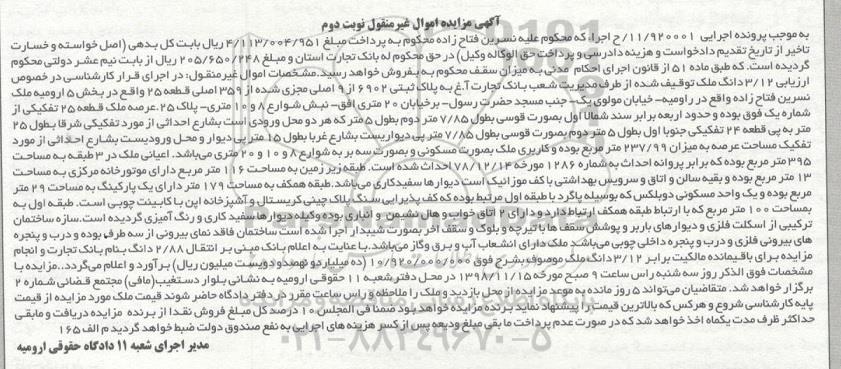 آگهی مزایده اموال غیرمنقول نوبت دوم
به موجب پرونده اجرایی 11/920001/ح اجرا، که محکوم علیه نسرین فتاح زاده محکوم به پرداخت مبلغ 4/113/004/951 ریال بابت کل بدهی (اصل خواسته و خسارت
تاخیر از تاریخ تقدیم دادخواست و هزینه دادرسی و پرداخت حق الوکاله وکیل) در حق محکوم له بانک تجارت استان و مبلغ 205/650/248 ریال از بابت نیم عشر دولتی محکوم
گردیده است. که طبق ماده 51 از قانون اجرای احکام مدنی به میزان سقف محکوم به بفروش خواهد رسید.مشخصات اموال غیرمنقول: در اجرای قرار کارشناسی در خصوص
ارزیابی 3/12 دانگ ملک توقیف شده از طرف مدیریت شعب بانک تجارت آ.غ به پلاک ثبتی 6902 از 9 اصلی مجزی شده از 359 اصلی قطعه 25 واقع در بخش 5 ارومیه ملک
نسرین فتاح زاده واقع در ارومیه- خیابان مولوی یک- جنب مسجد حضرت رسول- برخیابان 20 متری افق- نبش شوارع 8 و 10 متری- پلاک 25.عرصه ملک قطعه 25 تفکیکی از
شماره یک فوق بوده و حدود اربعه برابر سند شمالا اول بصورت قوسی بطول 7/85 متر دوم بطول 5 متر که هر دو محل ورودی است بشارع احداثی از مورد تفکیکی شرقا بطول 25
متر به پی قطعه 24 تفکیکی جنوبا اول بطول 5 متر دوم بصورت قوسی بطول 7/85 متر پی دیواریست بشارع غربا بطول 15 متر پی دیوار و محل ورودیست بشارع احداثی از مورد
تفکیک مساحت عرصه به میزان 237/99 متر مربع بوده و کاربری ملک بصورت مسکونی و بصورت سه بر به شوارع 8 و 10 و 20 متری می‌باشد. اعیانی ملک در 3 طبقه به مساحت
395 متر مربع بوده که برابر پروانه احداث به شماره 1286 مورخه 78/12/14 احداث شده است. طبقه زیر زمین به مساحت 116 متر مربع دارای موتورخانه مرکزی به مساحت
13 متر مربع بوده و بقیه سالن و اتاق و سرویس بهداشتی با کف موزائیک است دیوارها سفیدکاری می‌باشد.طبقه همکف به مساحت 179 متر دارای یک پارکینگ به مساحت 29 متر
مربع بوده و یک واحد مسکونی دوبلکس که بوسیله پاگرد با طبقه اول مرتبط بوده که کف پذیرایی سنگ پلاک چینی کریستال و آشپزخانه اپن با کابینت چوبی است. طبقه اول به
بمساحت 100 متر مربع که با ارتباط طبقه همکف ارتباط دارد و دارای 2 اتاق خواب و هال نشیمن و انباری بوده وکیله دیوارها سفید کاری و رنگ آمیزی گردیده است.سازه ساختمان
ترکیبی از اسکلت فلزی و دیوارهای باربر و پوشش سقف ها با تیرچه و بلوک و سقف آخر بصورت شیبدار اجرا شده است ساختمان فاقد نمای بیرونی از سه طرف بوده و درب و پنجره
های بیرونی فلزی و درب و پنجره داخلی چوبی می‌باشد ملک دارای انشعاب آب و برق وگاز می‌باشد.با عنایت به اعلام بانک مبنی بر انتقال 2/88 دانگ بنام بانک تجارت و انجام
مزایده برای باقیمانده مالکیت برابر 3/12 دانگ ملک موصوف بشرح فوق 10/920/000/000 (ده میلیارد و نهصد و دویست میلیون ریال) برآورد و اعلام می‌گردد..مزایده با
مشخصات فوق الذکر روز سه شنبه راس ساعت 9 صبح مورخه 1398/11/15 در محل دفتر شعبه 11 حقوقی ارومیه به نشانی بلوار دستغیب(مافی) مجتمع قضائی شماره 2
برگزار خواهد شد. متقاضیان می‌توانند 5 روز مانده به موعد مزایده از محل بازدید و ملک را ملاحظه و راس ساعت مقرر در دفتر دادگاه حاضر شوند قیمت ملک مورد مزایده از قیمت
پایه کارشناسی شروع و هرکس که بالاترین قیمت را پیشنهاد نماید برنده مزایده خواهد بود ضمنا فی المجلس 10 درصد کل مبلغ فروش نقدا از برنده مزایده دریافت و مابقی
حداکثر ظرف مدت یکماه اخذ خواهد شد که در صورت عدم پرداخت ما بقی مبلغ ودیعه پس از کسر هزینه های اجرایی به نفع صندوق دولت ضبط خواهد گردید م الف 165
مدیر اجرای شعبه 11 دادگاه حقوقی ارومیه
021-88349670-5